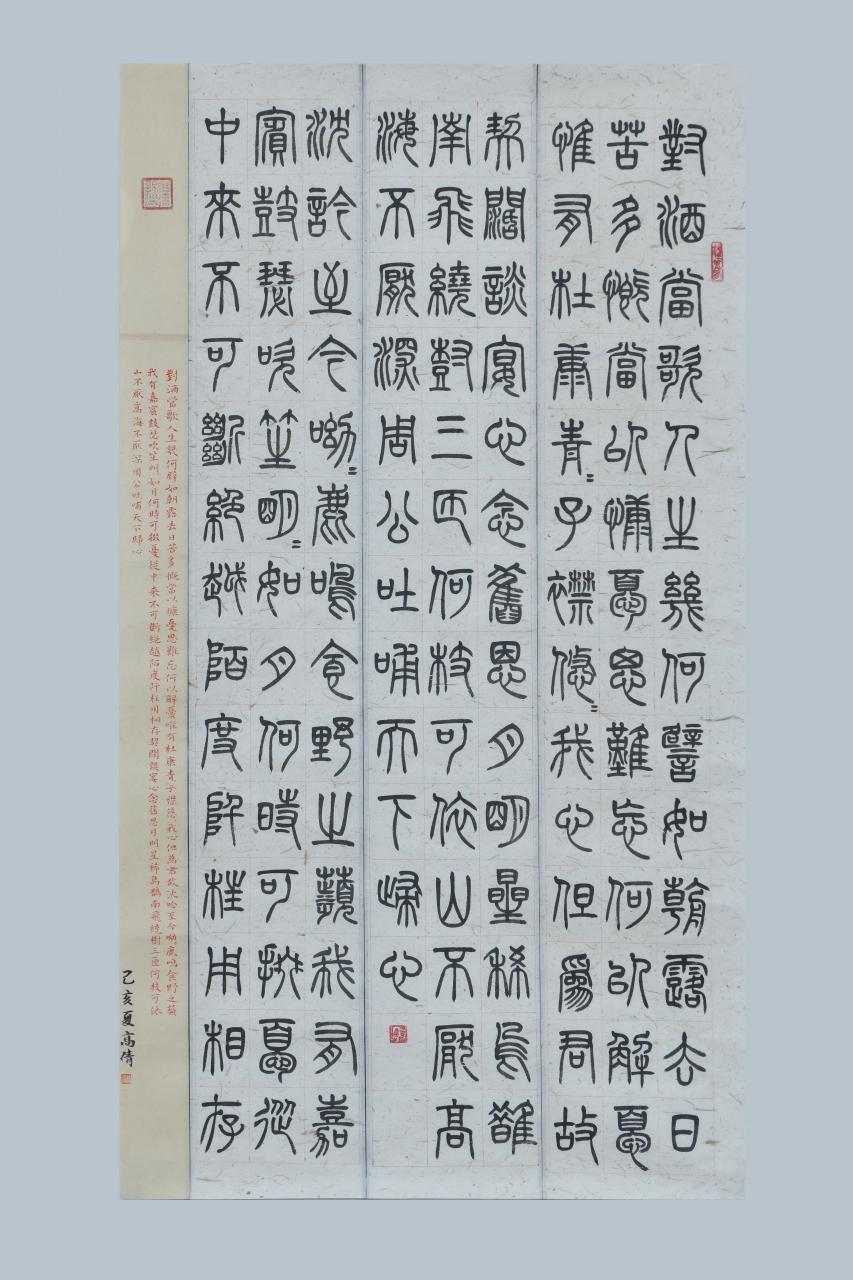 對酒當歌人生幾何譬如朝露去日
苦多慨當以慷憂思難忘何以解憂
惟有杜康青〻子襟悠〻我心但為君故
契闊談宴心念舊恩月明星稀烏鵲
南飛繞樹三匝何枝可依山不厭高
海不厭深周公吐哺天下歸心
沈吟至今呦〻鹿鳴食野之蘋我有嘉
賓鼓瑟吹笙明〻如月何時可掇憂從
中來不可斷絕越陌度阡枉用相存
對酒當歌人生幾何譬如朝露去日苦多慨當以慷憂思難忘何以解憂唯有杜康青〻子襟悠〻我心但為君故沈吟至今呦〻鹿鳴食野之蘋
我有嘉賓鼓瑟吹笙明〻如月何時可掇憂從中來不可斷絕越陌度阡枉用相存契闊談宴心念舊恩月明星稀烏鵲南飛繞樹三匝何枝可依
山不厭高海不厭深周公吐哺天下歸心
己亥夏高倩